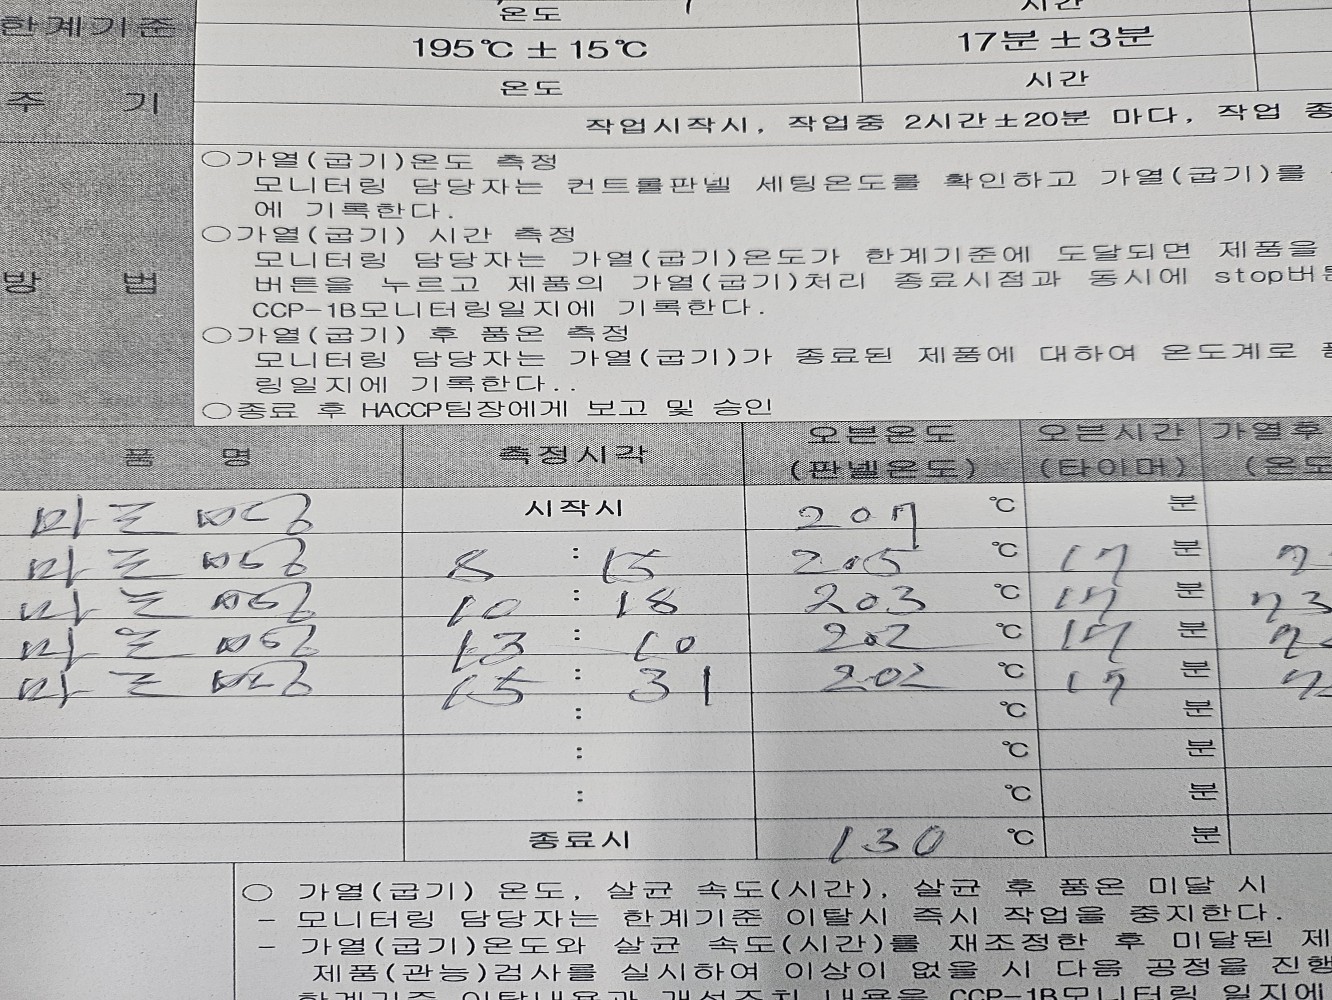 한계기준 온도 시간
195℃ ± 15℃ 17분 ±3분
주 기 온도 시간
작업시작시, 작업중 2시간±20분 마다, 작업 종
방 법
○가열(굽기)온도 측정
모니터링 담당자는 컨트롤판넬 세팅온도를 확인하고 가열(굽기)를
에 기록한다.
○가열(굽기) 시간 측정
모니터링 담당자는 가열(굽기)온도가 한계기준에 도달되면 제품을
버튼을 누르고 제품의 가열(굽기)처리 종료시점과 동시에 stop버튼
CCP-1B모니터링일지에 기록한다.
○가열(굽기) 후 품온 측정
모니터링 담당자는 가열(굽기)가 종료된 제품에 대하여 온도계로
링일지에 기록한다..
○종료 후 HACCP팀장에게 보고 및 승인
품 명 측정시각 오븐온도 오븐시간 가열후
(판넬온도) (타이머) (온도
시작시 207 ℃ 분
8 : 15 205 ℃ 17 분
10 : 18 203 ℃ 17 분 73
13 : 10 202 ℃ 17 분
15 : 31 202 ℃ 17 분
: ℃ 분
: ℃ 분
: ℃ 분
종료시 130 ℃ 분
○ 가열(굽기) 온도, 살균 속도(시간), 살균 후 품온 미달 시
- 모니터링 담당자는 한계기준 이탈시 즉시 작업을 중지한다.
- 가열(굽기)온도와 살균 속도(시간)를 재조정한 후 미달된 제
제품(관능)검사를 실시하여 이상이 없을 시 다음 공정을 진행
한계기준 이탈내용과 개선조치 내용을 CCP-1B모니터링 일지에